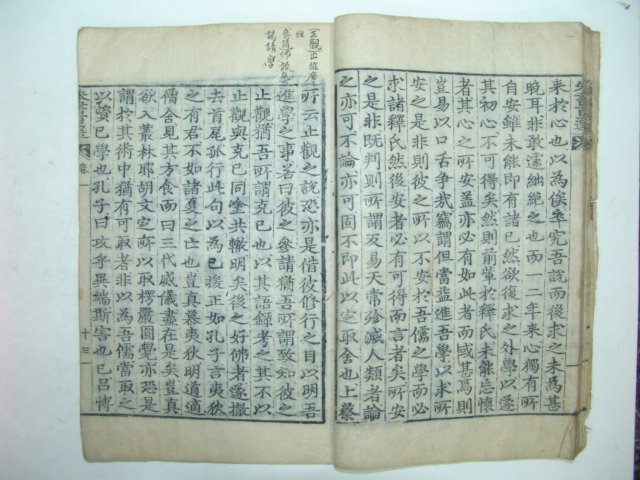 来於心也以為俟卒究吾説而後求之未為甚
晚耳非敢遽絀絶之也而一二年来心獨有所
自安雖未能即有諸已然欲復求之外學以遂
其初心不可得矣然則前輩於釋氏未能忘懷
者其心之所安盖亦必有如此者而或甚焉則
豈易以口舌争哉竊謂但當益進吾學以求所
安之是非則彼之所以不安於吾儒之學而必
求諸釋氏然後安者必有可得而言者矣所安
之是非既判則所謂反易天常殄滅人類者論
之亦可不論亦可固不即此以定取舍也上蔡
所云止觀之説恐亦是借彼修行之目以明吾
進學之事若曰彼之參請猶吾所謂致知彼之
止觀猶吾所謂克已也以其語録考之其不以
止觀與克已同塗共轍明矣後之好佛者遂掇
去首尾孤行此句以為已援正如孔子言夷狄
之有君不如諸夏之亡也豈真慕夷狄明道適
僧舍見其方食而曰三代威儀盡在是矣豈真
欲入叢林耶胡文定所以取楞嚴圓覺亦恐是
謂於其術中猶有可取者非以為吾儒當取之
以資已學也孔子曰攻乎異端斯害也已吕博
卷一
十三